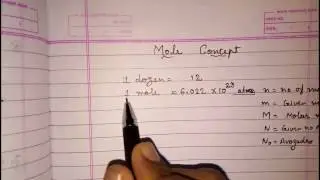 Mole Concept
1 dozen = 12
1 mole = 6.022 × 10²³ atoms
n = no of
m = Given
M = Molar
N = Given no
N₀ = Avogadro